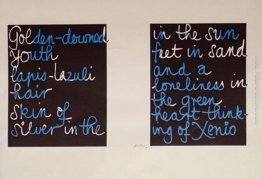 Golden-downed
youth
lapis-lazuli
hair
skin of
silver in the
in the sun
feet in sand
and a
loneliness in
the green
heart think-
ing of Xenio